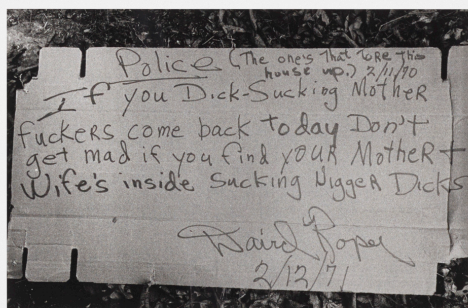 Police (The one's That toRe This
house up.) 2/11/70
If you Dick-Sucking MotheR
fuckers come back today Don't
get mad if you find youR MotheR +
Wife's inside Sucking NiggeR Dicks
Roper
2/12/71